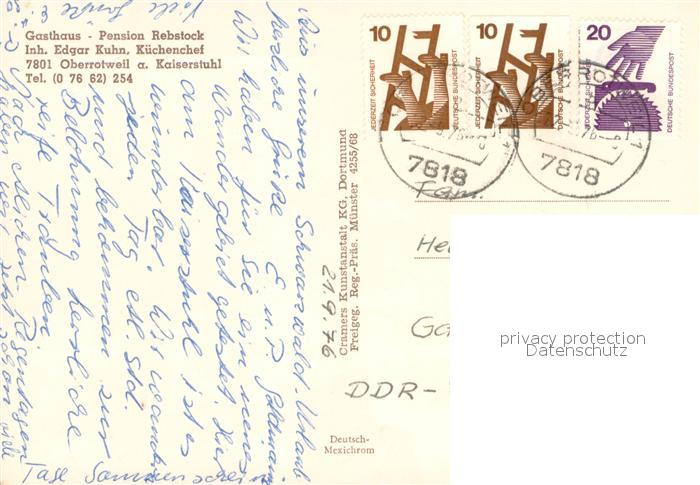 Gasthaus - Pension Rebstock
Inh. Edgar Kuhn, Küchenchef
7801 Oberrotweil a. Kaiserstuhl
Tel. (0 76 62) 254
10
JEDERZEIT SICHERHEIT
DEUTSCHE BUNDESPOST
10
JEDERZEIT SICHERHEIT
DEUTSCHE BUNDESPOST
20
JEDERZEIT SICHERHEIT
DEUTSCHE BUNDESPOST
7818
7818
Fam.
He
Ga
DDR-
21.9.76
Cramers Kunstanstalt KG. Dortmund
Freigeg. Reg.-Präs. Münster 4255/68
Deutsch-
Mexichrom
privacy protection
Datenschutz
Schwarzwald-Urlaub
herzliche Grüße E. u. P.
Wir haben für Sie ein neues
Wandergebiet getestet. Hier
am Kaiserstuhl ist es
wunderbar. Wir wandern
jeden Tag etl. Std.
und bekommen zur
Belohnung herrliche
reife Trauben.
Nach Regentagen
haben wir jetzt schon viele
Tage Sonnenschein
Viele Grüße